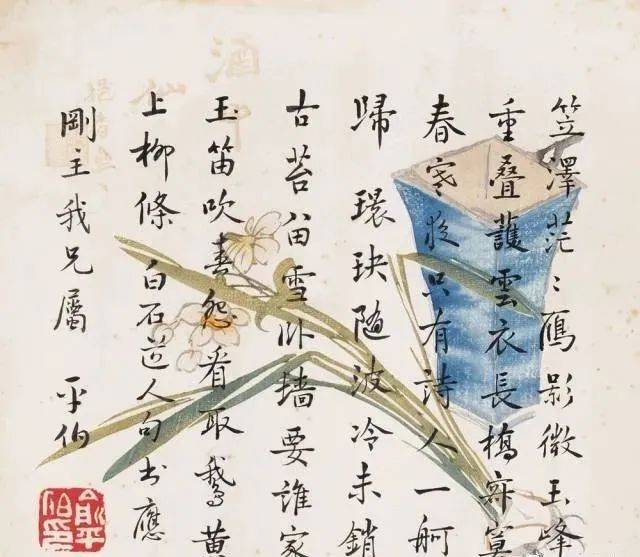 笠澤茫〻鴈影微玉峰
重叠護雲衣長橋寂寞
春寒夜只有詩人一舸
歸 環玦隨波冷未銷
古苔留雪卧墻要誰家
玉笛吹春怨看取鵞黄
上柳條 白石道人句書應
剛主我兄屬 平伯
俞平伯印
酒中
仙